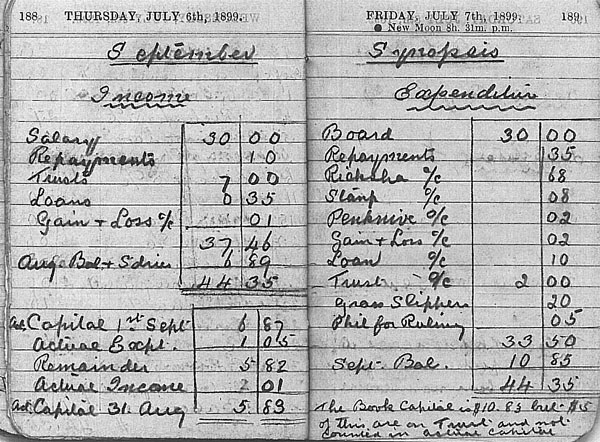 188 THURSDAY, JULY 6th, 1899.
September
Income
Salary 30 00
Repayments 10
Trusts 7 00
Loans 0 35
Gain + Loss a/c 01
37 46
Aug Bal + Sdries 6 89
44 35
Act Capital 1st Sept 6 87
Actual Expt. 1 05
Remainder 5 82
Actual Income 2 01
Act Capital 31. Aug 5 83
FRIDAY, JULY 7th, 1899. 189
● New Moon 8h. 31m. p.m.
Synopsis
Expenditure
Board 30 00
Repayments 35
Riksha a/c 68
Stamp a/c 08
Penknive a/c 02
Gain + Loss a/c 02
Loan a/c 10
Trust a/c 2 00
Grass Slippers 20
Phil for Ruling 05
33 50
Sept. Bal. 10 85
44 35
The Book Capital is $10.83 but $5
of this are on Trust and not
counted in actual capital